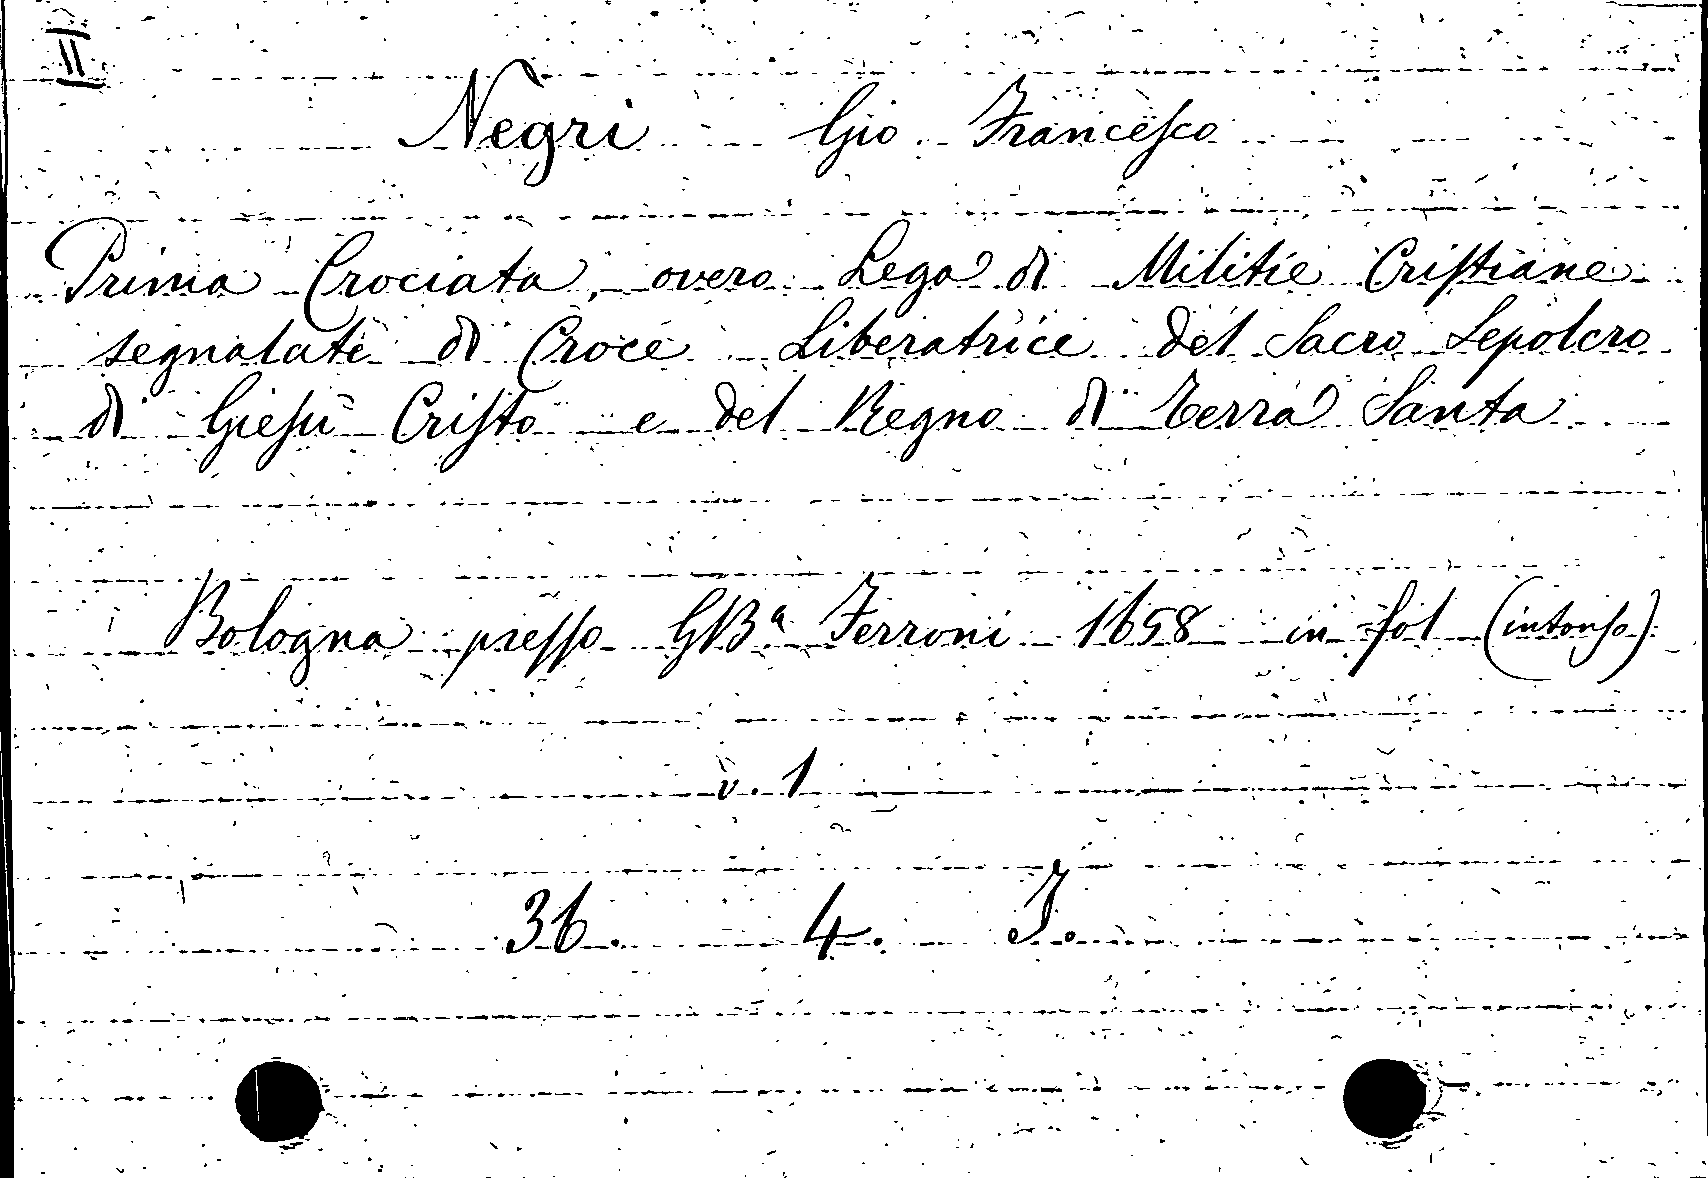 II
Negri Gio. Francesco
Prima Crociata, overo Lega di Militie Cristiane
segnalate di Croce Liberatrice del Sacro Sepolcro
di Giesù Cristo e del Regno di Terra Santa
Bologna presso GBa Ferroni 1658 in fol (intonso)
v. 1
36. 4. J.